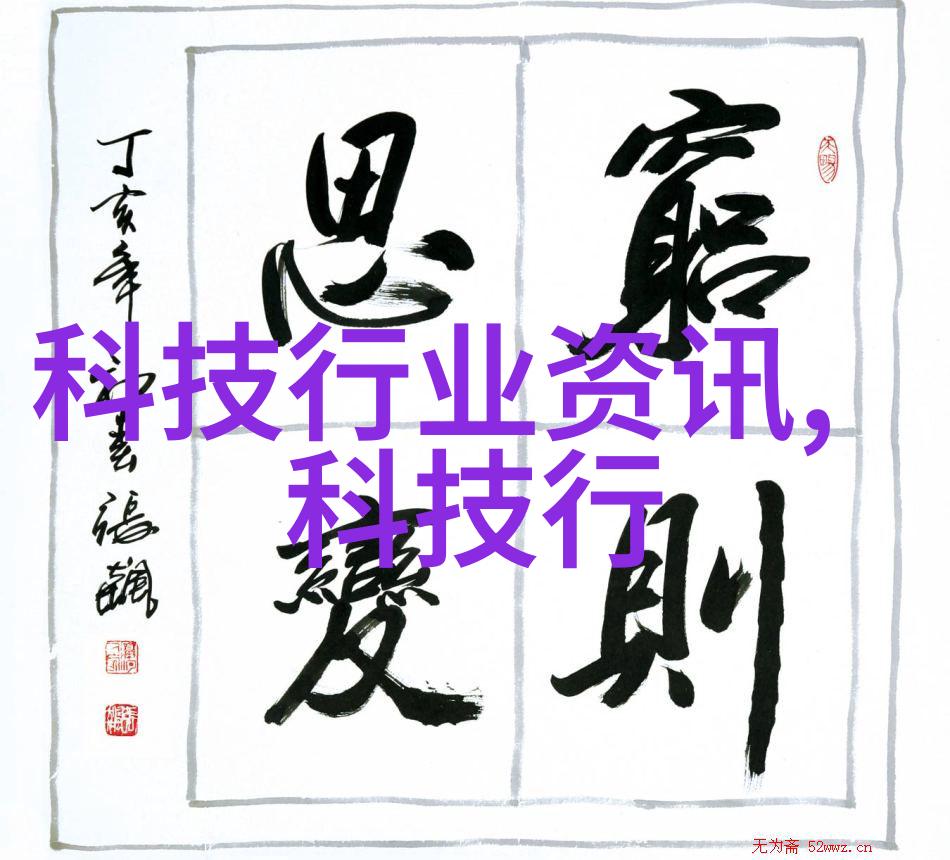 窮則
思變
丁亥年
張飆
科技行业资讯,
科技行
无为斋 52wwz.cn